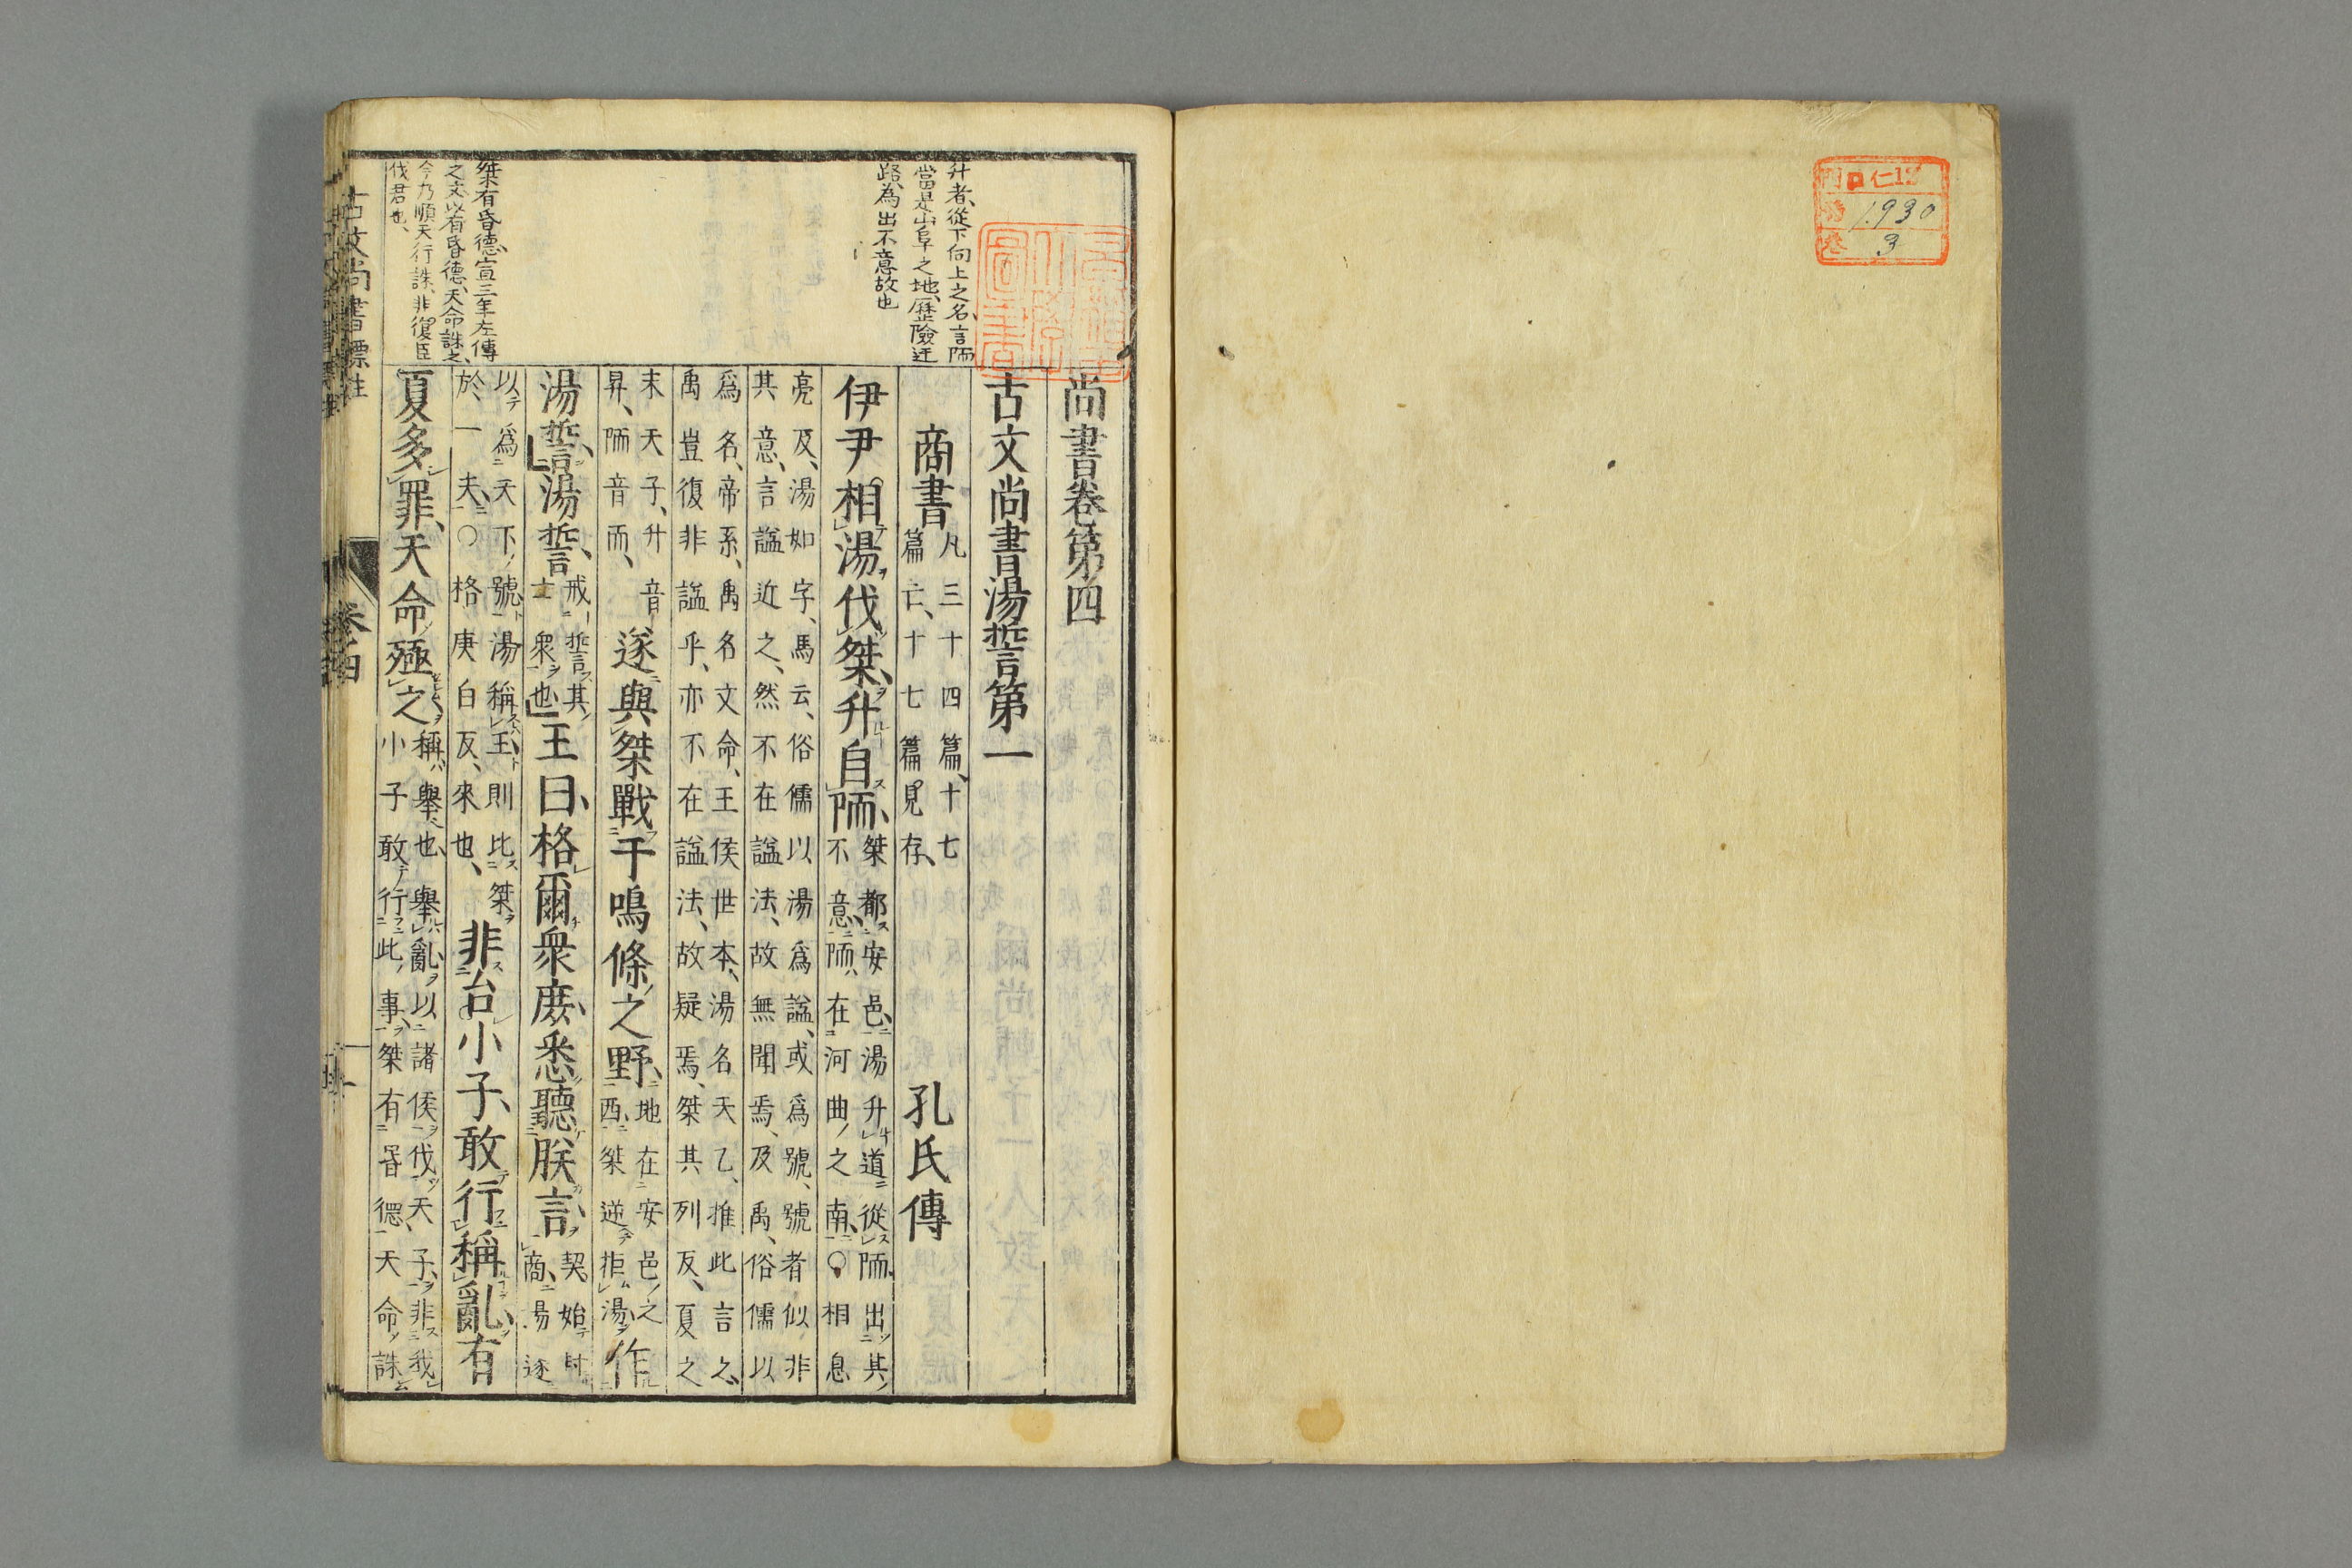 1930
3
尚書卷第四
古文尚書湯誓第一
商書
凡三十四篇、十七
篇亡、十七篇見存、
孔氏傳
伊尹相湯伐桀、升自陑、
桀都安邑、湯升道從陑、出其
不意、陑在河曲之南、○相息
亮反、湯如字、馬云、俗儒以湯爲諡、或爲號、號者似非
其意、言諡近之、然不在諡法、故無聞焉、及禹、俗儒以
爲名、帝系、禹名文命、王侯世本、湯名天乙、推此言之
禹豈復非諡乎、亦不在諡法、故疑焉、桀其列反、夏之
末天子、升音
昇、陑音而、
遂與桀戰于鳴條之野、
地在安邑之
西、桀逆拒湯
作
湯誓、湯誓、
戒誓其
士衆也
王曰、格爾衆庶、悉聽朕言、
契始封
商、湯遂
以爲天下號、湯稱王、則比桀
於一夫、○格庚白反、來也、
非台小子、敢行稱亂、有
夏多罪、天命殛之、
稱、舉也、舉亂以諸侯伐天子、非我
小子敢行此事、桀有昬德、天命誅
升者、從下向上之名、言陑
當是山阜之地、歷險迂
路、為出不意故也
桀有昏德、宣三年左傳
之文、以有昏德、天命誅之、
今乃順天行誅、非復臣
伐君也、
古文尚書標註
卷之四
一